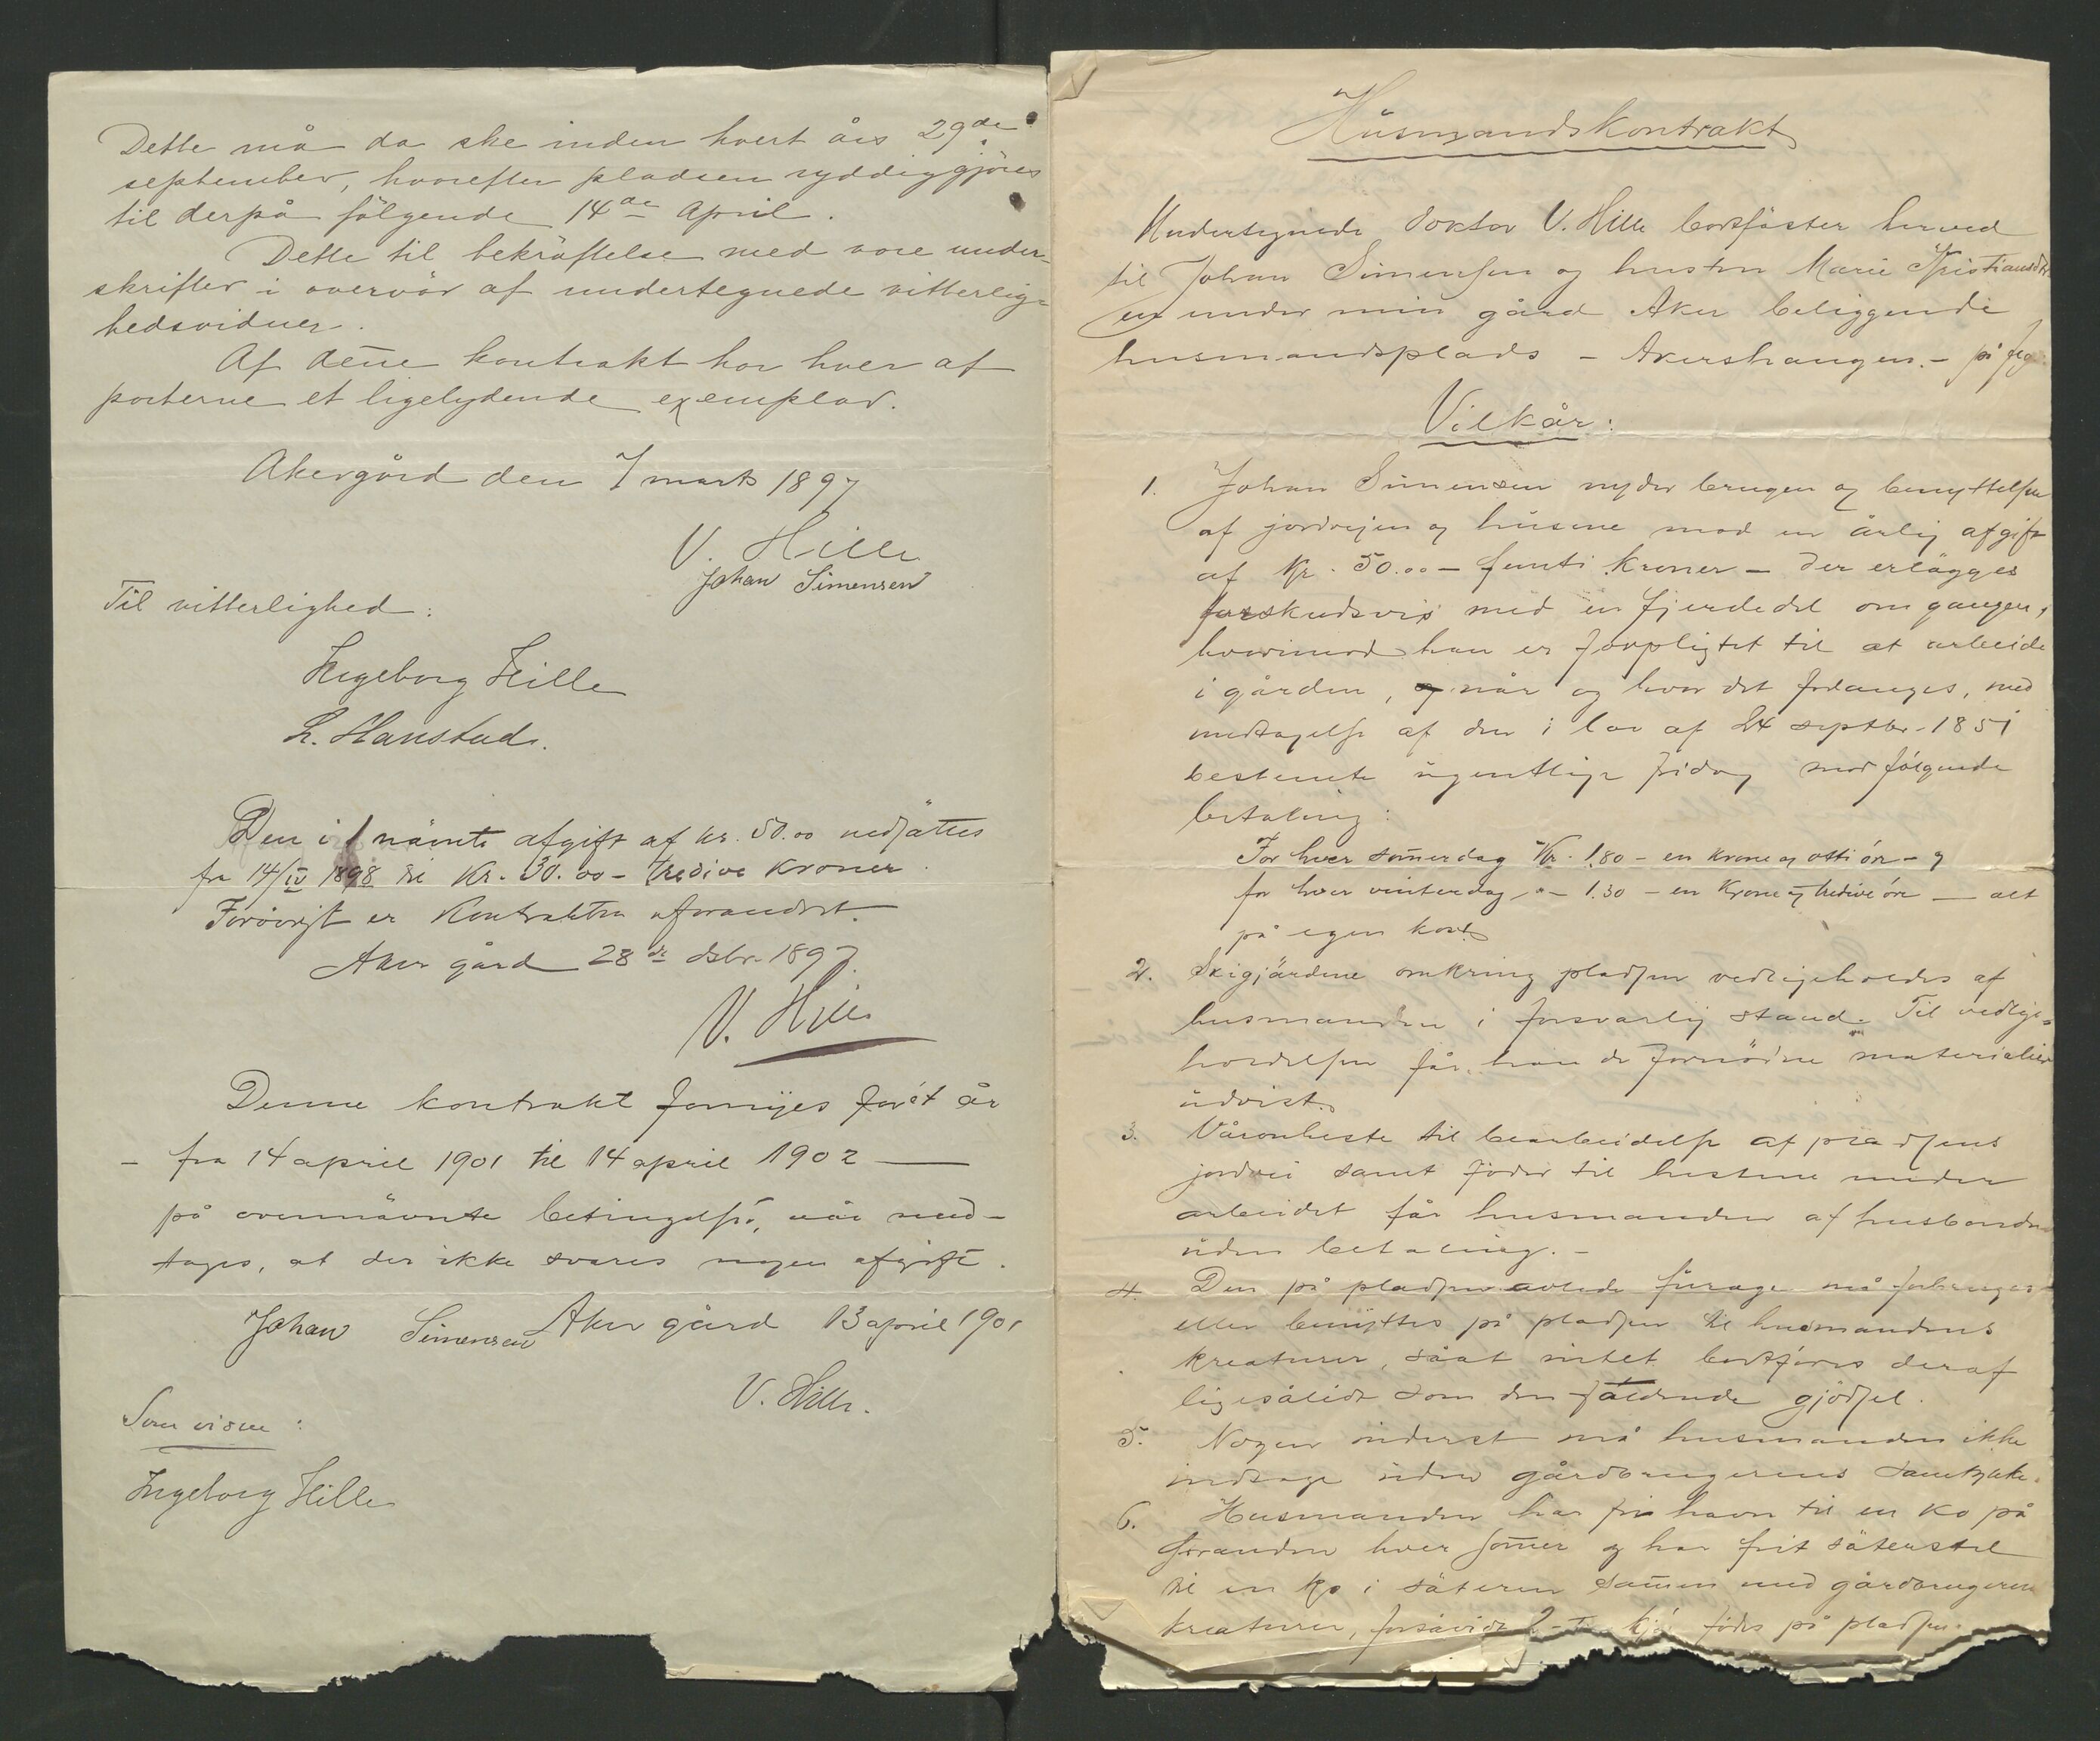 Dette må da ske inden hvert års 29de
september, hvorefter pladsen ryddiggjöres
til derpå fölgende 14de April.
Dette til bekräftelse med vore under-
skrifter i overvär af undertegnede vitterlig-
hedsvidner.
Af denne kontrakt har hver af
parterne et ligelydende exemplar.
Akergård den 7 marts 1897
V. Hille
Johan Simensen
Til vitterlighed:
Ingeborg Hille
L. Hanstad.
Den i 1 nämnte afgift af kr. 50.00 nedsättes
fra 14/IV 1898 til Kr. 30.00 – tredive kroner.
Forövrigt er Kontrakten uforandret.
Aker gård 28de dsbr. 1897.
V. Hille
Denne kontrakt fornyes for ét år
– fra 14 april 1901 til 14 april 1902 –
på ovennävnte betingelser, når und-
tages, at der ikke svares nogen afgift.
Aker gård 13 april 1901
Johan Simensen
V. Hille.
Som vidne:
Ingeborg Hille
Húsmandskontrakt
Undertegnede Doktor V. Hille bortfäster herved
til Johan Simensen og hustru Marie Kristiansdtr
en under min gård Aker beliggende
husmandsplads – Akershaugen. – på følg.
Vilkår:
1. Johan Simensen nyder brugen og benyttelsen
af jordvejen og húsene mod en årlig afgift
af Kr. 50.00 – femti kroner – der erlägges
forskudsvis med en fjerdedel om gangen,
hvorimod han er forpligtet til at arbeide
i gården, og når og hvor det forlanges, med
undtagelse af den i lov af 24 septbr. 1851
bestemte úgentlige fridag mod fölgende
betaling:
For hver somerdag Kr. 1.80 – en krone og otti öre – og
for hver vinterdag " – 1.30 – en Krone og tredive öre – alt
på egen kost.
2. Skigjärdene omkring pladsen vedligeholdes af
husmanden i forsvarlig stand. Til vedlige-
holdelsen får han de fornödne materialier
údvist.
3. Våronheste til bearbeidelse af pladsens
jordvei samt foder til hestene under
arbeidet får husmanden af husbonden
úden betaling. –
4. Den på pladsen avlede fúrage må forbruges
eller benyttes på pladsen til husmandens
kreaturer, såat intet bortföres deraf
ligesålidt som den faldende gjödsel.
5. Nogen inderst må husmanden ikke
indtage úden gårdbrugerens samtykke.
6. Husmanden har fri havn til en ko på
stranden hver somer og har frit säterstel
til en ko i säteren samen med gårdbrugerens
kreaturer, forsåvidt 2 – to kjör födes på pladsen.